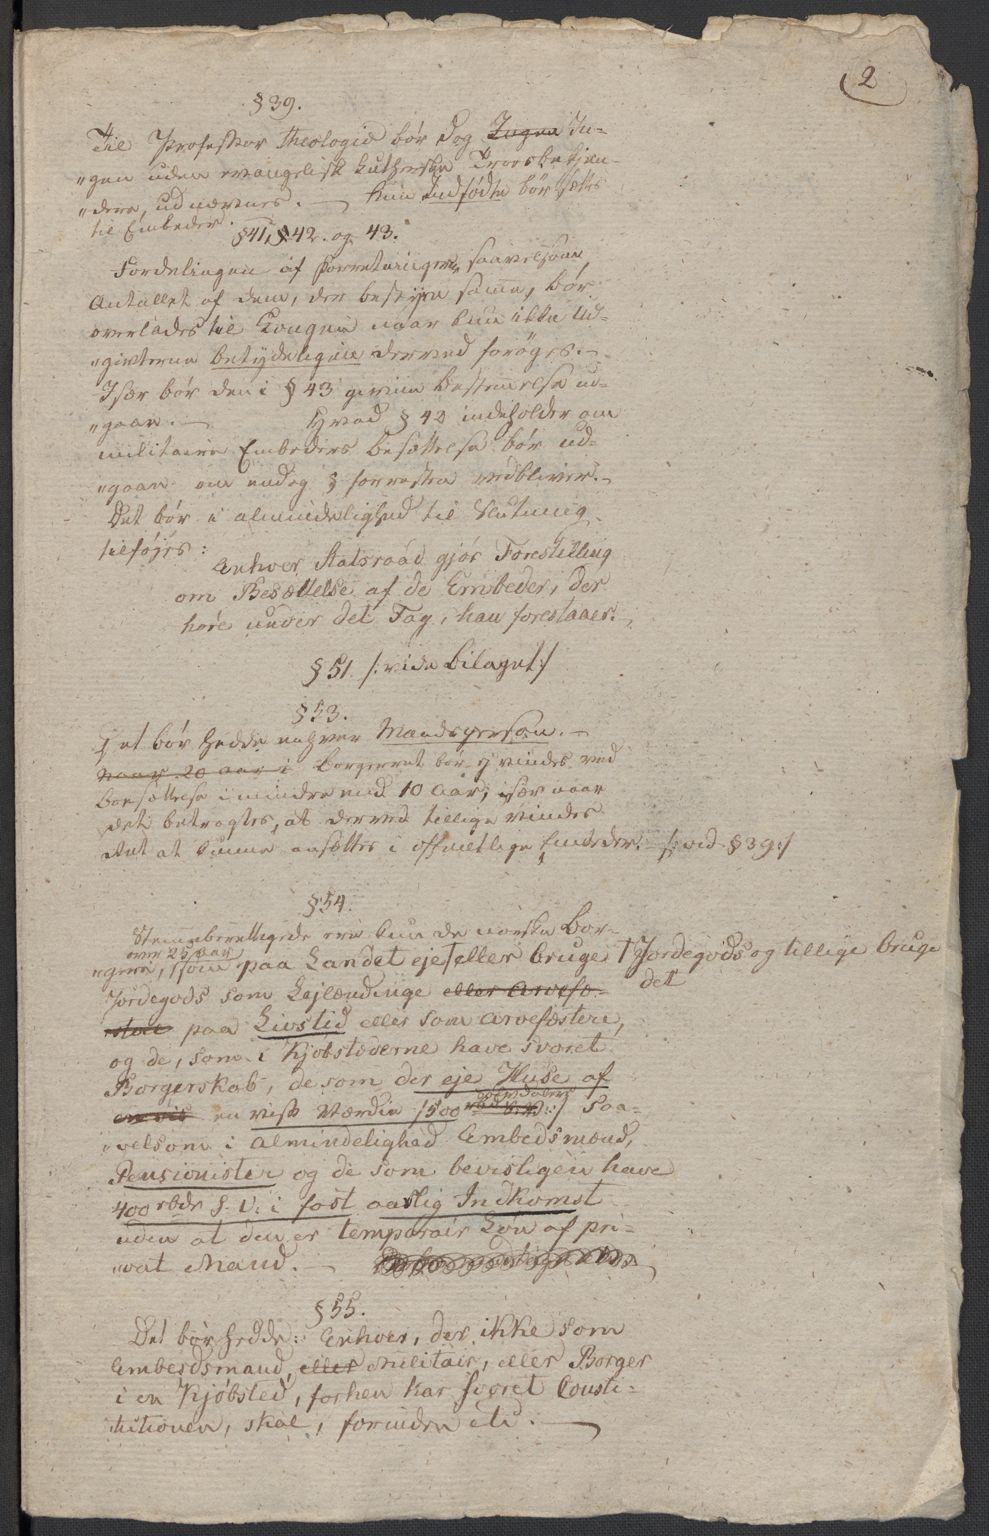 2
§ 39.
Til Professor Theologiæ bør dog Ingen In-
"gen uden evangelisk Lutherske Troesbekjen-
"dere, udnævnes. – Kun Indfødte bør sættes
til Embeder.
§ 41, § 42. og 43.
Fordelingen af Forretninger, saavelsom
Antallet af dem, der bestyre samme, bør
overlades til Kongen naar kun ikke Ud-
"givterne betydeligen derved forøges. –
Især bør den i § 43 givne Bestemmelse ud-
"gaae. – Hvad § 42 indeholder om
militaire Embeders Besættelse bør ud-
"gaae om endog § forresten vedbliver. –
Det bør i Almindelighed til Slutning
tilføjes:
Enhver Statsraad gjør Forestilling
om Besættelse af de Embeder, der
høre under det Fag, han forestaaer.
§ 51. /: vide Bilaget :/
§ 53.
Det bør hedde enhver Mandsperson. –
naar 20 aar i Borgerret bør ej vindes ved
Bosættelse i mindre end 10 Aar, især naar
det betragtes, at derved tillige vindes
Ret at kunne ansættes i offentlige Embeder. /: vid § 39 :/
§ 54.
Stemmeberettigede ere kun de norske Bor-
over 25 aar
"gere, som paa Landet eje † eller bruge † Jordegods og tillige bruge
det
Jordegods som Lejlændinge eller Arvefæ-
paa Livstid eller som Arvefæstere,
og de, som i Kjøbstæderne have svoret
Borgerskab, de som der eje Huse af
en vis en visse Værdie /500 S. V. :/ saa-
"velsom i Almindelighed Embedsmænd,
Pensionister og de som bevisligen have
400 rbdr S. V. i fast aarlig Indkomst
uden at den er temporair Løn af pri-
"vat Mand. –
§ 55.
Det bør hedde: Enhver, der ikke som
Embedsmand, eller Militair, eller Borger
i en Kjøbsted, forhen har svoret Consti-
tutionen, skal, forinden etc. –